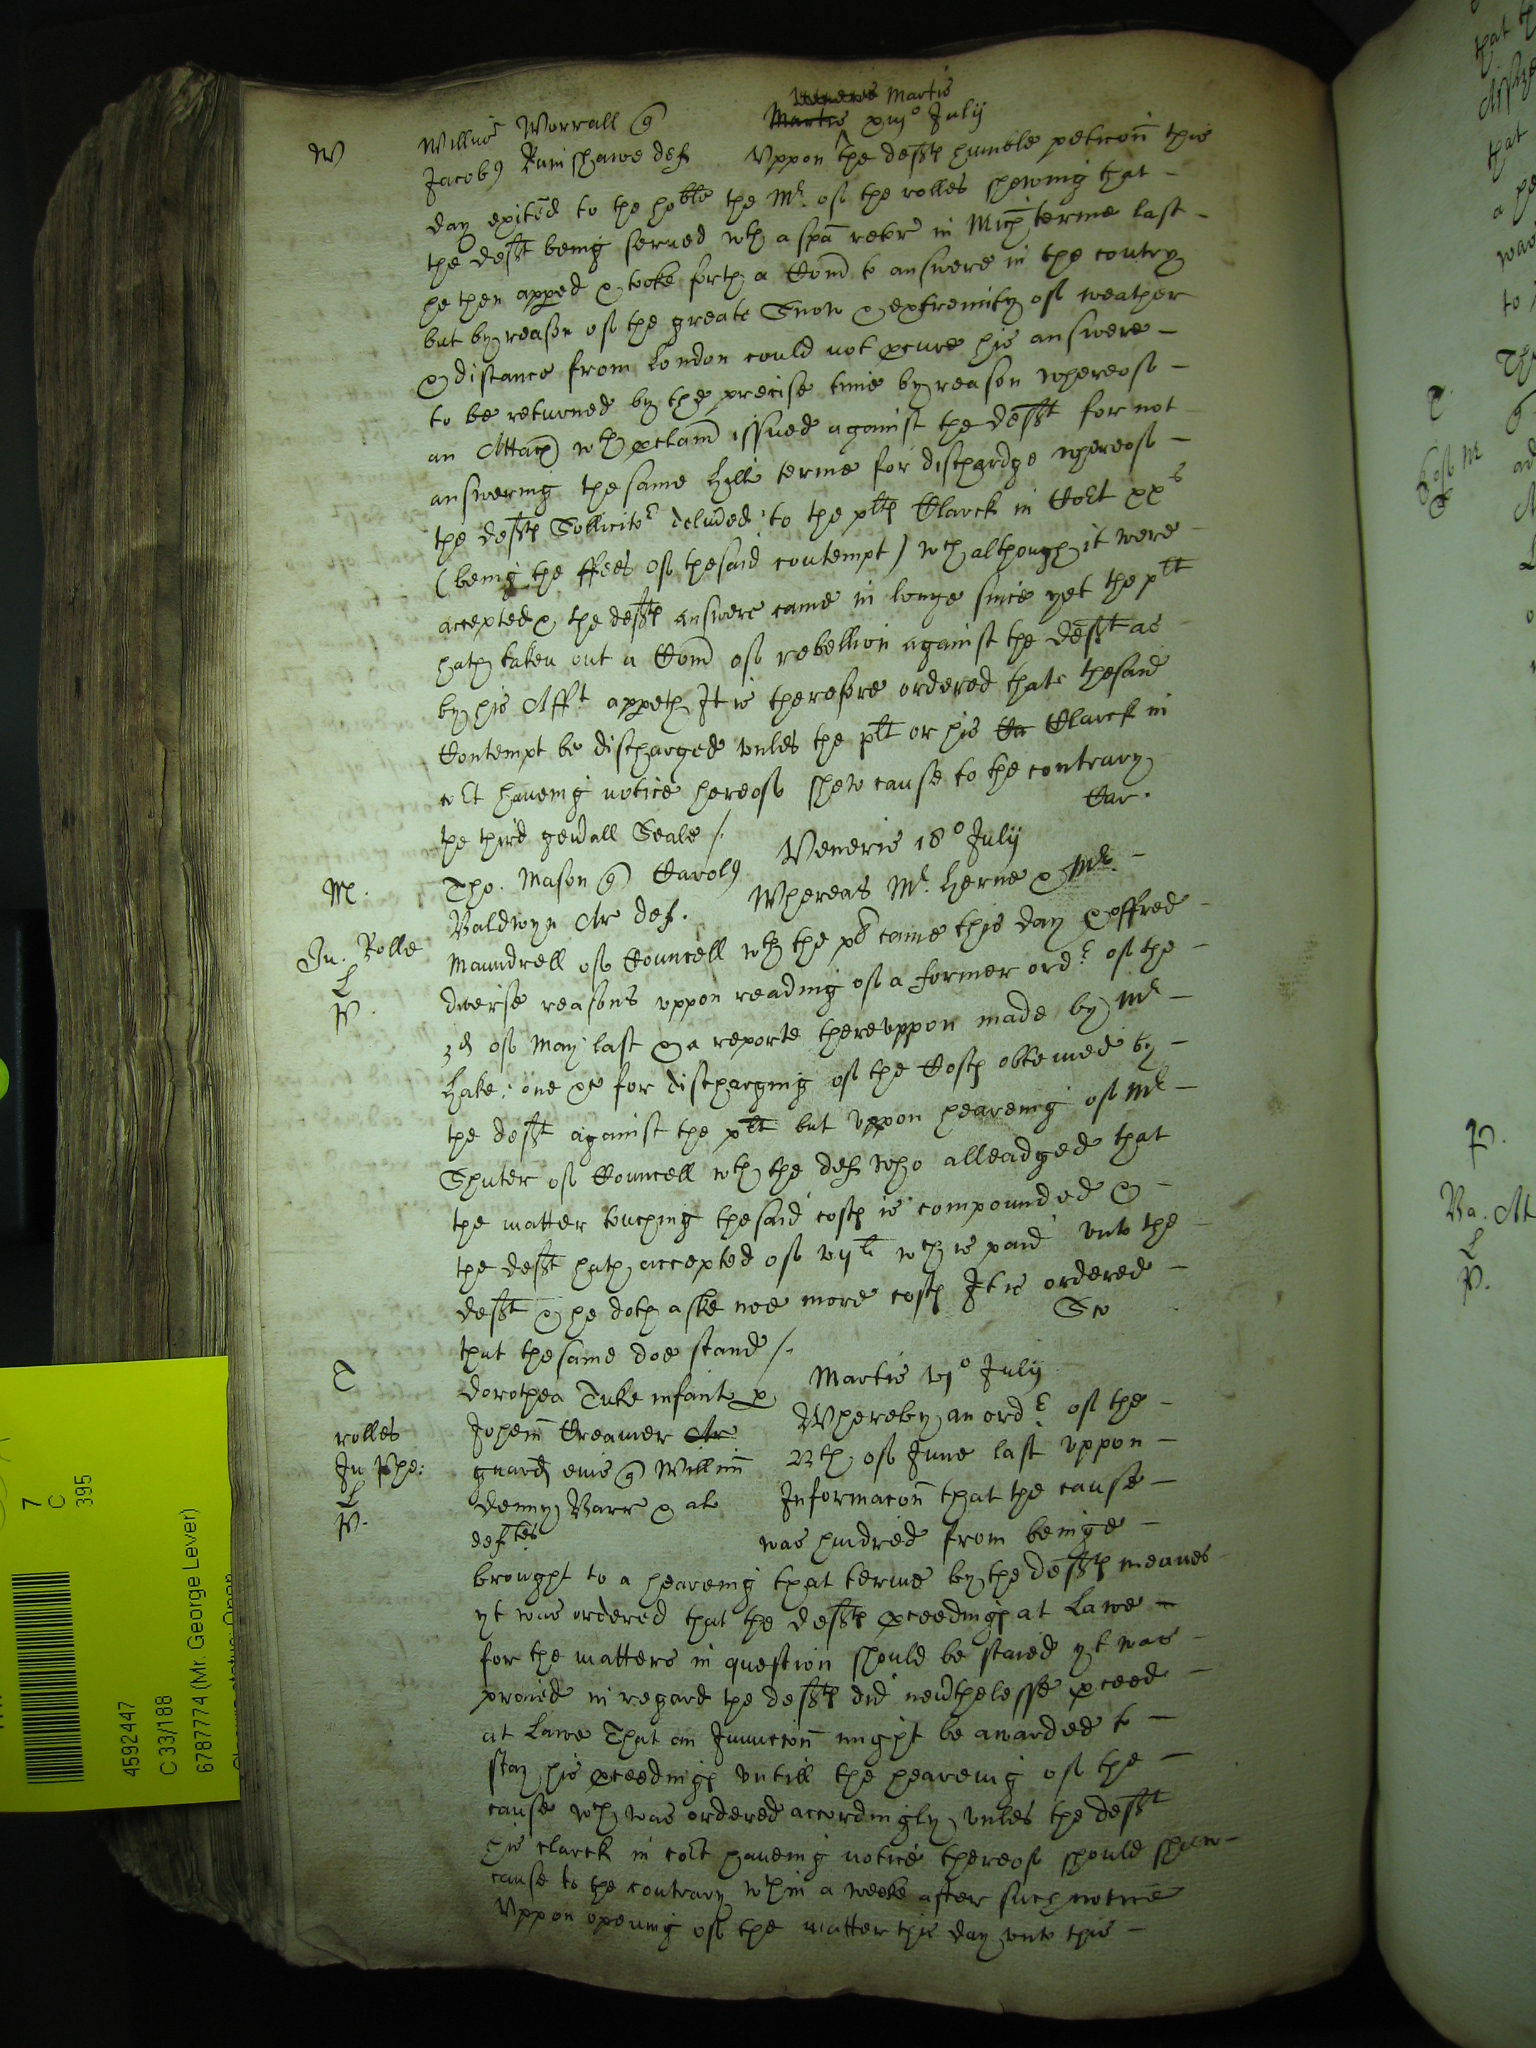 Veneris Martis
W Willus Worrall q Martis xiijo Julij
Jacobus Ranishawe def Uppon the defts humble peticon this
day exited to the hoble the Mr. of the rolles shewing that -
the deft being served wth a spa retor in Mich terme last -
he then apped & tooke forth a Com to answere in the contry
but by reason of the greate Snow & extremity of weather
& distance from London could not pcure his answere -
to be returned by the precise time by reason whereof -
an Attach wth pclam issued against the deft for not
answering the same Hill terme for dischardge whereof -
the defts Sollicitr delived to the plts Clarck in Cort xxs
(being the ffees of the said contempt) wch although it were
accepted & the defts answere came in longe since yet the plt
hath taken out a Com of rebellion against the deft as
by his Afft appeth It is therefore ordered that thesaid
Contempt be discharged unles the plt or his Cu Clarck in
cort haveing notice hereof shew cause to the contrary
the third genall Seale /. Car.
Veneris 18o Julij
M. Tho. Mason q Carolus Whereas Mr. Herne & Mr. -
Baldwyn Ar def.
In. Rolle Maundrell of Councell wth the pl came this day & offred -
L diverse reasons uppon reading of a former ordr of the -
P. 3d of May last & a reporte thereuppon made by Mr -
Hake: one &c for discharging of the Costs obteined by -
the deft against the plt but uppon heareing of Mr -
Shuter of Councell wth the def who alleadged that
the matter touching thesaid costs is compounded & -
the deft hath accepted of vijli wch is paid unto the -
deft & he doth aske noe more costs It is ordered -
that thesame doe stand /. Sco
T Dorothea Tuke infant p Martis vjo July
rolles Johem Creamer Ar Whereby an ordr of the -
In Phe: guard eius q Willim 22th of June last uppon -
L Denny Barr & al Informacon that the cause -
P. deftes was hindred from beinge -
brought to a heareing that terme by the defts meanes
yt was ordered that the defts pceedings at Lawe -
for the matters in question should be staied yt was -
praied in regard the defts did nevthelesse pceed -
at Lawe That an Iniuccon might be awarded to -
stay his pceedings untill the heareing of the -
cause wch was ordered accordingly unles the deft
his clarck in cort haveing notice thereof should shew -
cause to the contrary wthin a weeke after such notice
Uppon opening of the matter this day unto this -
7
C
395
4592447
C 33/188
6787774 (Mr. George Lever)